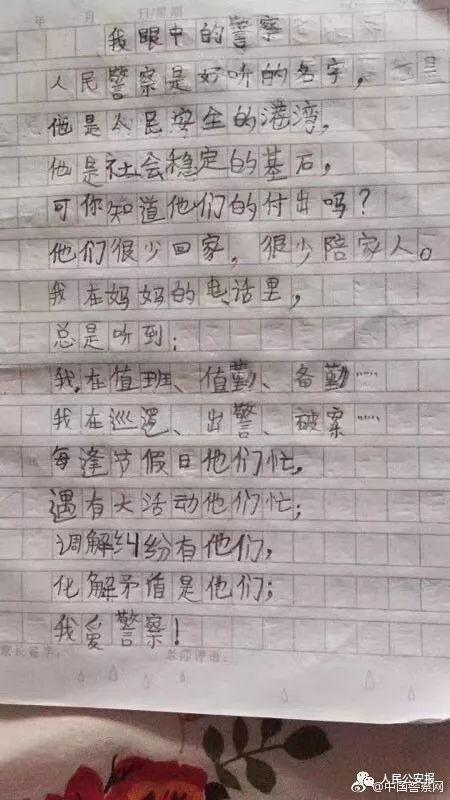 年 月 日/星期
我眼中的警察
人民警察是好听的名字，
他是人民安全的港湾，
他是社会稳定的基石，
可你知道他们的付出吗？
他们很少回家，很少陪家人。
我在妈妈的电话里，
总是听到：
我在值班、值勤、备勤……
我在巡逻、出警、破案……
每逢节假日他们忙，
遇有大活动他们忙；
调解纠纷有他们，
化解矛盾是他们；
我爱警察！
家长签字： 老师评语：
人民公安报
@中国警察网